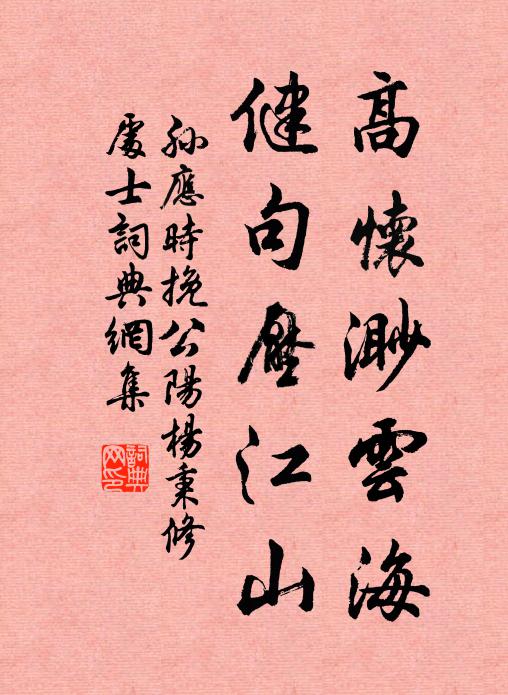 高懷渺雲海
健句壓江山
孫應時挽公陽楊秉修
處士詞典網集
詞典网印